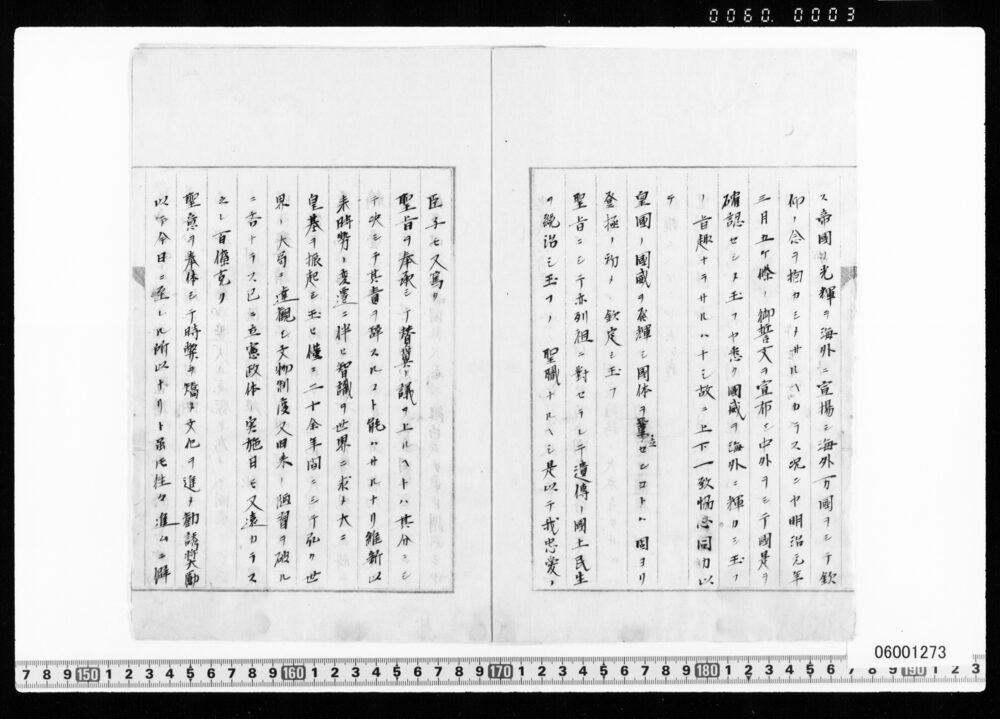 0060. 0003
ス帝國ノ光輝ヲ海外ニ宣揚シ海外万國ヲシテ欽
仰ノ念ヲ抱カシメサルヘカラス况ニヤ明治元年
三月五ケ條ノ御誓文ヲ宣布シ中外ヲシテ國是ヲ
確認セシメ玉フヤ悉ク國威ヲ海外ニ輝カシ玉フ
ノ旨趣ナラサルハナシ故ニ上下一致恊心同力以
テ
皇國ノ國威ヲ發輝シ國体ヲ鞏セシコトハ固ヨリ
登極ノ初メ欽定シ玉フ
聖旨ニシテ亦列祖ニ對セラレテ遺傳ノ國土民生
ヲ統治シ玉フノ聖職ナルヘシ是以テ我忠愛ノ
臣子モ又篤ク
聖旨ヲ奉承シテ替翼ノ議ヲ上ルヘキハ其分ニシ
テ决シテ其責ヲ辞スルコト能ハサルナリ維新以
来時勢ノ変遷ニ伴ヒ智識ヲ世界ニ求メ大ニ
皇基ヲ振起シ玉ヒ僅ニ二十余年間ニシテ能ク世
界ノ大局ニ達觀シ文物制度又旧来ノ陋習ヲ破ル
ニ吝ナラス已ニ立憲政体ノ実施日モ又遠カラス
之レ百僚克ク
聖意ヲ奉体シテ時弊ヲ矯メ文化ヲ進メ勧誘奨勵
以テ今日ニ至レル所以ナリト虽モ往々進ムニ僻
06001273
7 8 9 150 1 2 3 4 5 6 7 8 9 160 1 2 3 4 5 6 7 8 9 170 1 2 3 4 5 6 7 8 9 180 1 2 3 4 5 6 7 8 9 190 1 2 3